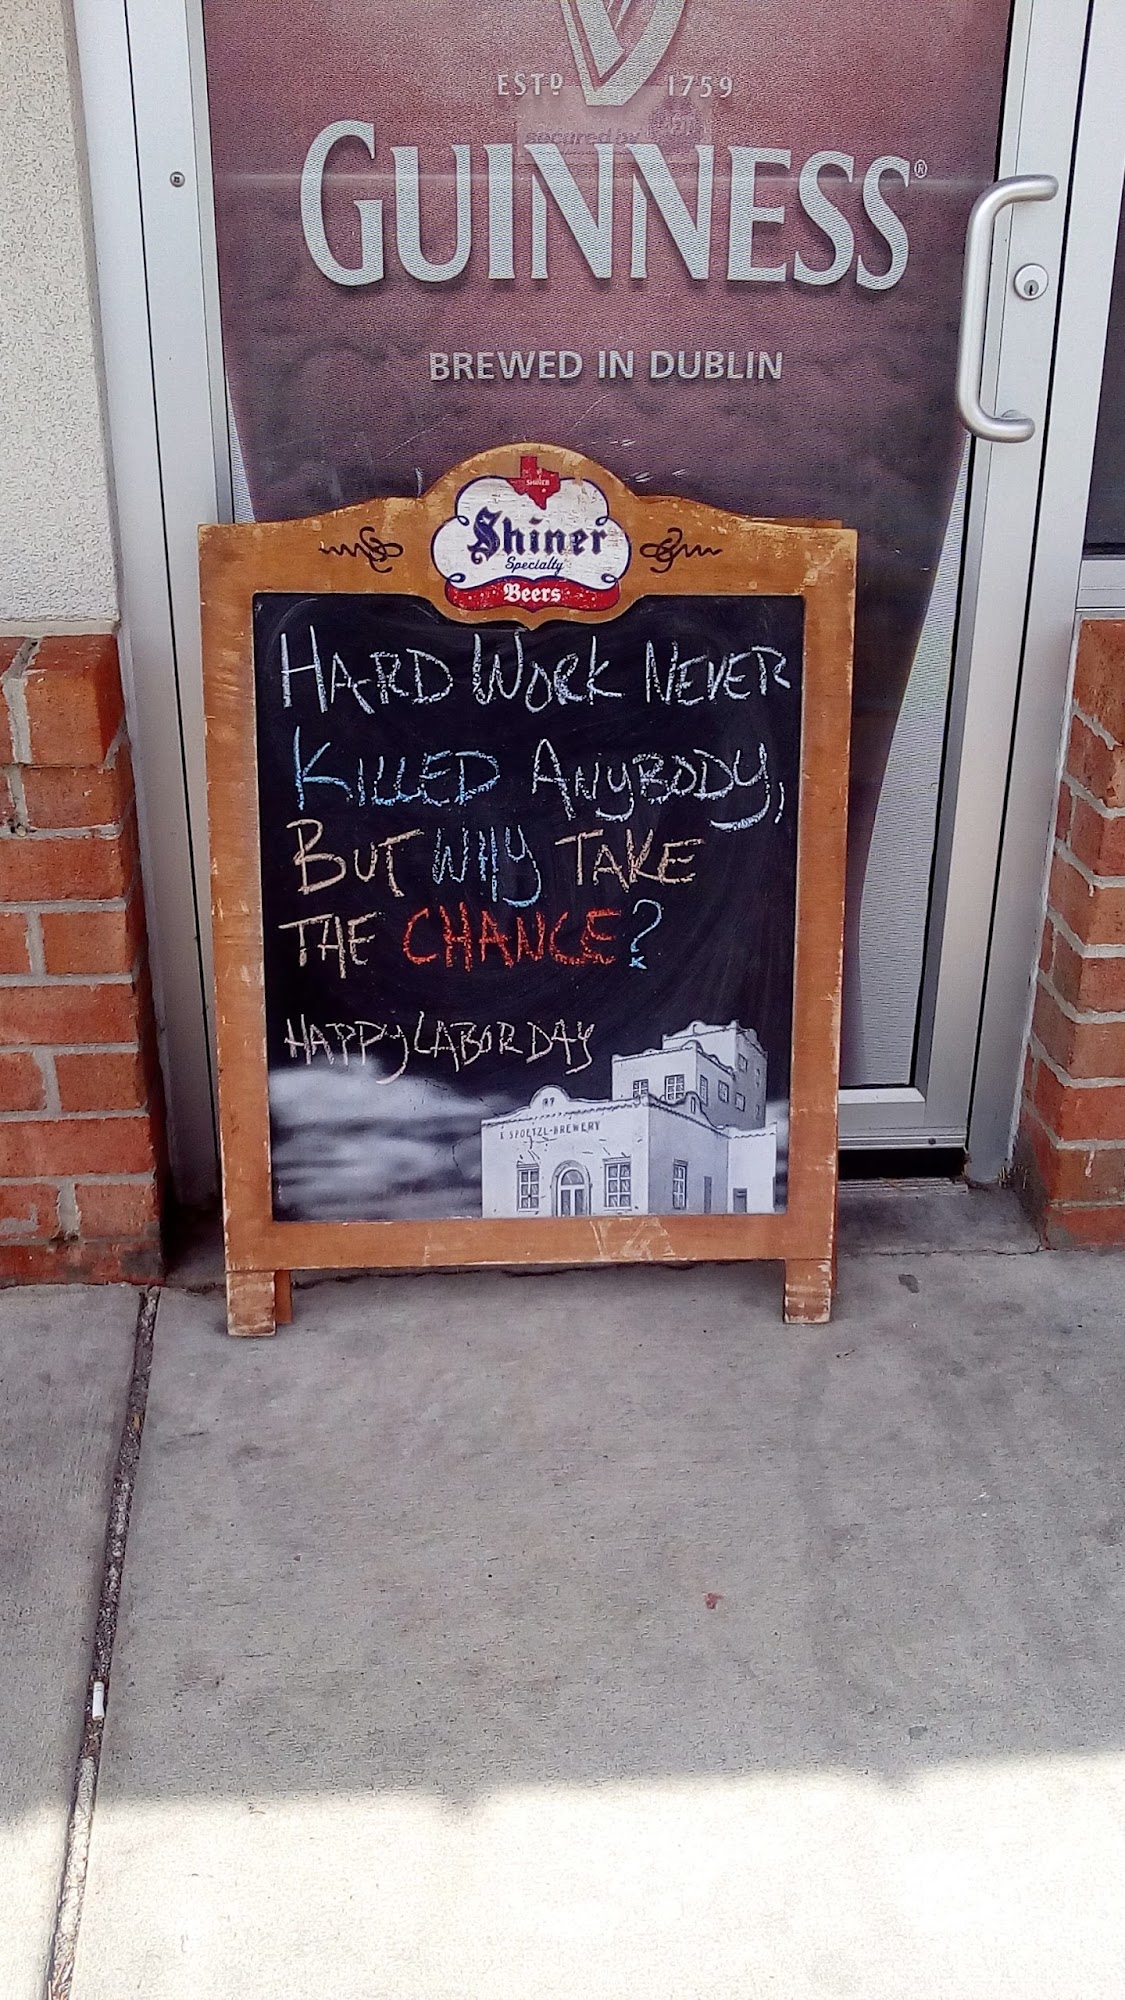 ESTD 1759
secured by
GUINNESS®
BREWED IN DUBLIN
SHINER
Shiner
Specialty
Beers
HARD WORK NEVER
KILLED ANYBODY,
BUT WHY TAKE
THE CHANCE?
HAPPY LABOR DAY
SPOETZL-BREWERY